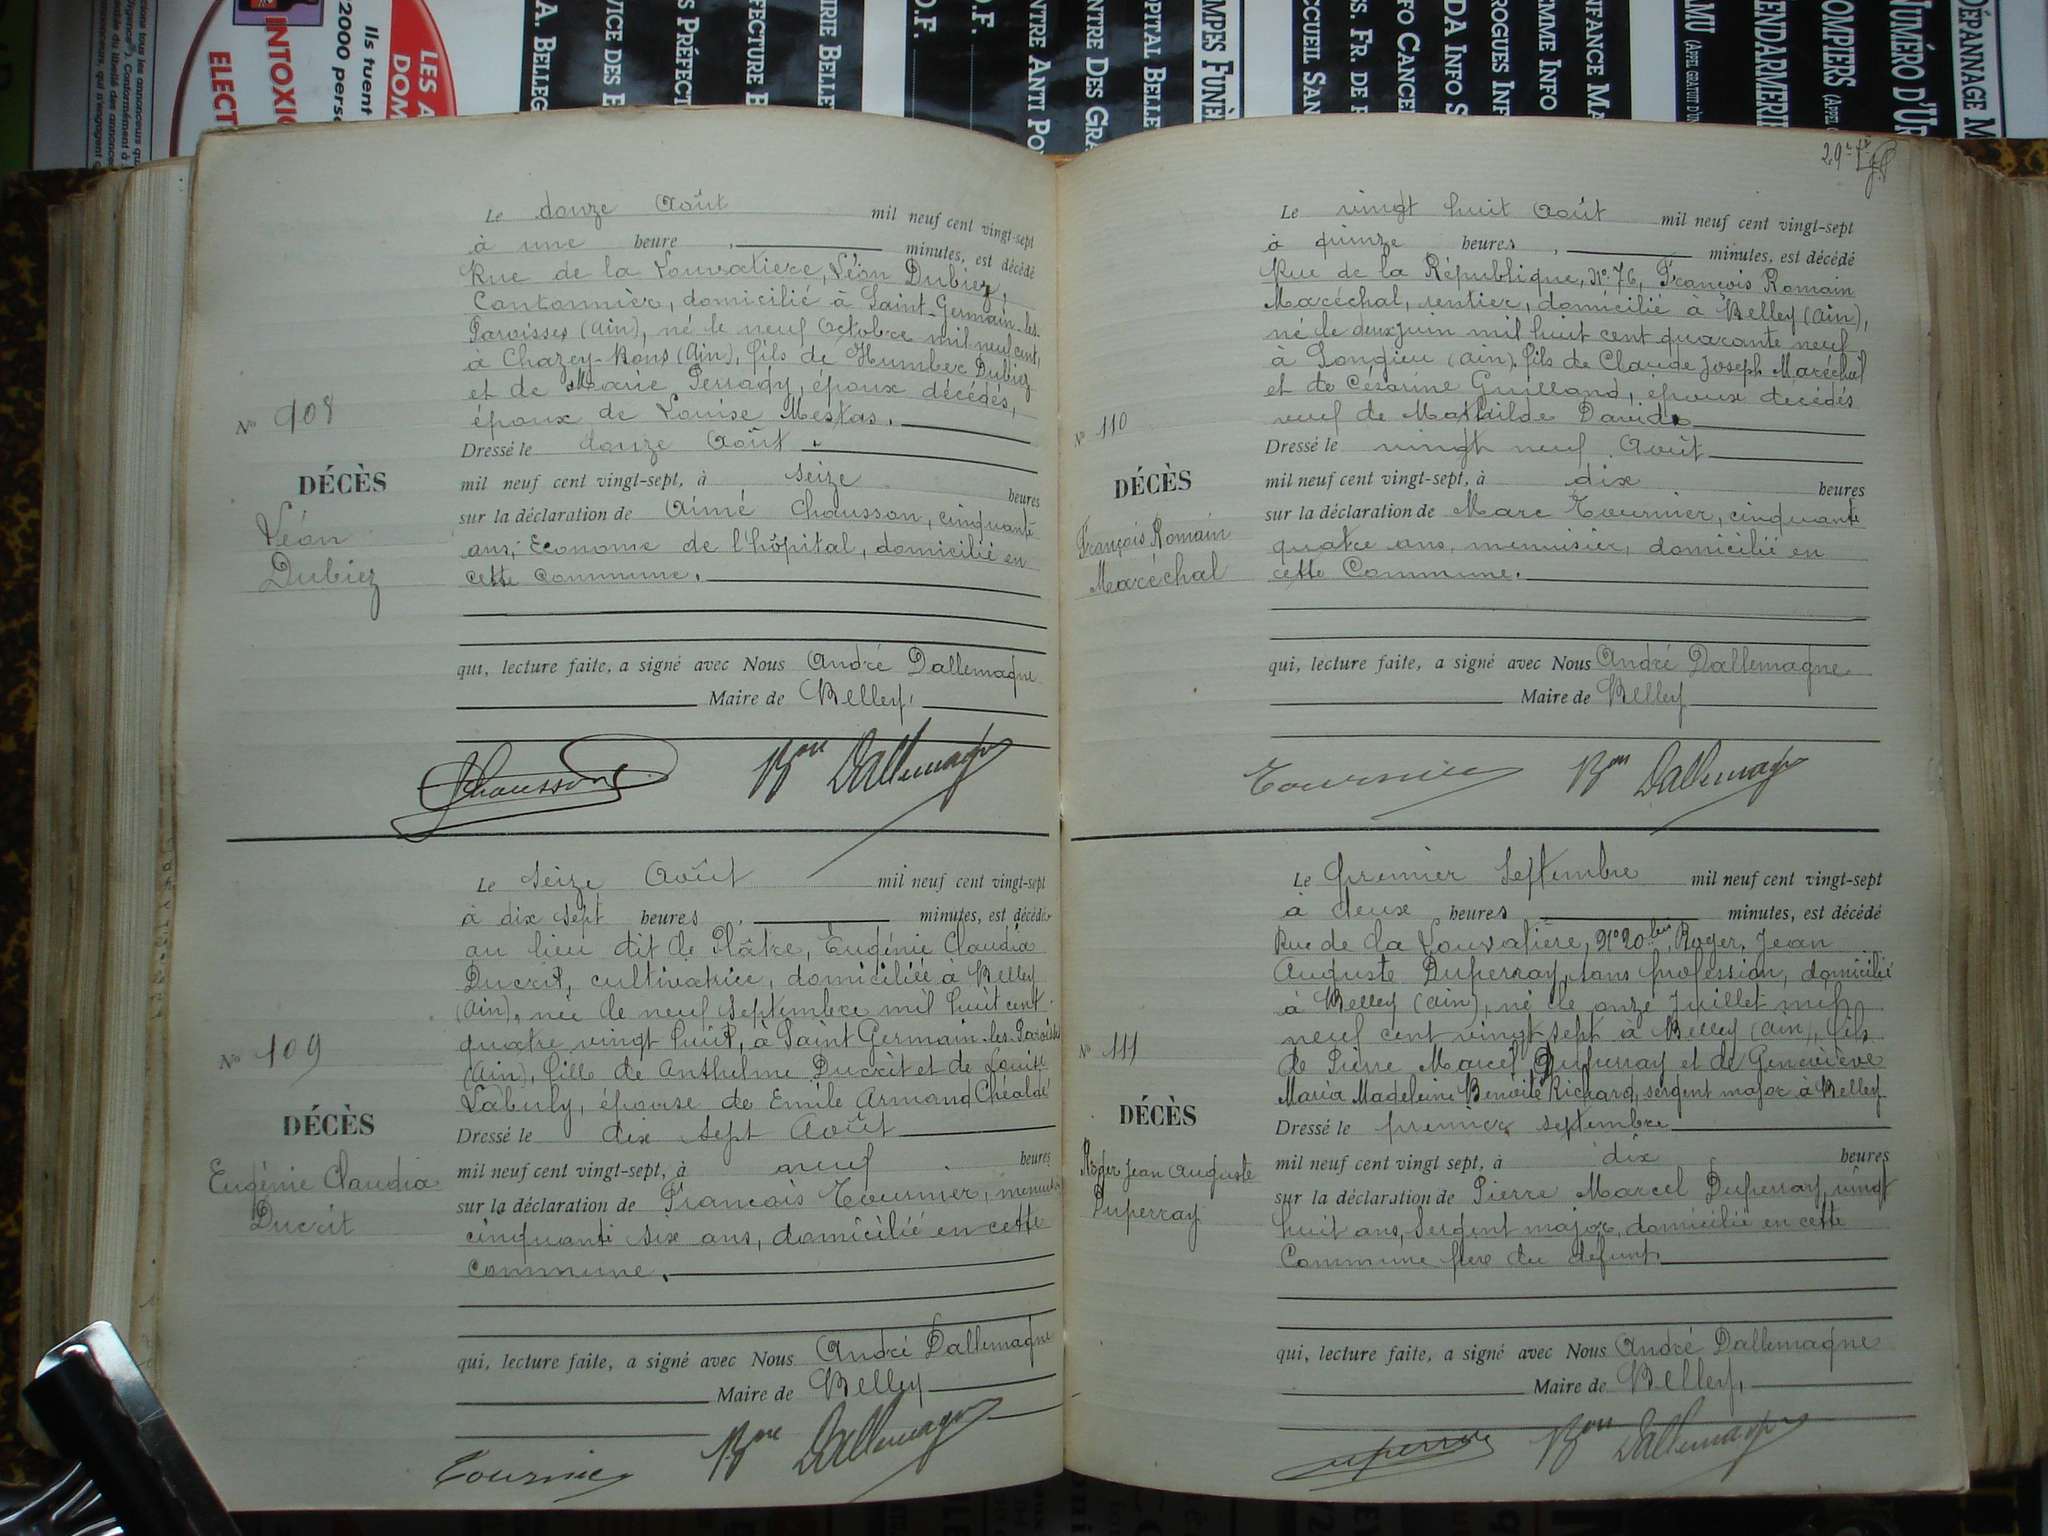 LES A
DOM
Ils tuent
2000 perso
INTOXIC
ELECT
A. BELLEG
VICE DES E
S PRÉFECT
FECTURE B
IRIE BELLE
O.F.
O.F.
NTRE ANTI PO
NTRE DES GRA
PITAL BELLE
MPES FUNÈB
CCUEIL SAN
SS. FR. DE
FO CANCE
DA INFO S
ROGUES INF
EMME INFO
NFANCE MA
AMU (APPEL GRATUIT D'UN
ENDARMERIE
OMPIERS (APPEL
NUMÉRO D'UR
DÉPANNAGE M
Le douze Août mil neuf cent vingt-sept
à une heure , minutes, est décédé
Rue de la Louvatière, Léon Dubiez,
Cantonnier, domicilié à Saint-Germain-les-
Paroisses (Ain), né le neuf Octobre mil neuf cent,
à Chazey-Bons (Ain), fils de Humbert Dubiez
et de Marie Perrady, époux décédés,
époux de Louise Mestas.
Nº 108
Dressé le douze Août.
DÉCÈS
mil neuf cent vingt-sept, à seize heures
Léon
Dubiez
sur la déclaration de Aimé Chausson, cinquante
ans, Econome de l'hôpital, domicilié en
cette commune.
qui, lecture faite, a signé avec Nous André Dallemagne
Maire de Belley,
Chausson Bon Dallemagne
Le seize Août mil neuf cent vingt-sept
à dix sept heures , minutes, est décédée
au lieu dit le Plâtre, Eugénie Claudia
Ducrit, cultivatrice, domiciliée à Belley
(Ain), née le neuf Septembre mil huit cent
quatre vingt huit, à Saint Germain-les-Paroisses
(Ain), fille de Anthelme Ducrit et de Louise
Labuly, épouse de Emile Armand Chéalaé
Nº 109
Dressé le dix sept Août
DÉCÈS
mil neuf cent vingt-sept, à neuf heures
Eugénie Claudia
Ducrit
sur la déclaration de François Tournier, menuis
cinquante six ans, domicilié en cette
commune.
qui, lecture faite, a signé avec Nous André Dallemagne
Maire de Belley
Tournier Bon Dallemagne
29e
Le vingt huit Août mil neuf cent vingt-sept
à quinze heures , minutes, est décédé
Rue de la République, Nº 76, François Romain
Maréchal, rentier, domicilié à Belley (Ain),
né le deux juin mil huit cent quarante neuf
à Songieu (Ain), fils de Claude Joseph Maréchal
et de Césarine Guilland, époux décédés
veuf de Mathilde David
Nº 110
Dressé le vingt neuf Août
DÉCÈS
mil neuf cent vingt-sept, à dix heures
François Romain
Maréchal
sur la déclaration de Marc Tournier, cinquante
quatre ans, menuisier, domicilié en
cette Commune.
qui, lecture faite, a signé avec Nous André Dallemagne
Maire de Belley
Tournier Bon Dallemagne
Le premier Septembre mil neuf cent vingt-sept
à deux heures minutes, est décédé
Rue de la Louvatière, Nº 20 bis, Roger, Jean
Auguste Duperray, sans profession, domicilié
à Belley (Ain), né le onze Juillet mil
neuf cent vingt sept à Belley (Ain), fils
de Pierre Marcel Duperray et de Geneviève
Maria Madeleine Benoite Richard, sergent major à Belley
Nº 111
Dressé le premier septembre
DÉCÈS
mil neuf cent vingt sept, à dix heures
Roger Jean Auguste
Duperray
sur la déclaration de Pierre Marcel Duperray, vingt
huit ans, Sergent major, domicilié en cette
Commune père du défunt
qui, lecture faite, a signé avec Nous André Dallemagne
Maire de Belley,
Duperray Bon Dallemagne